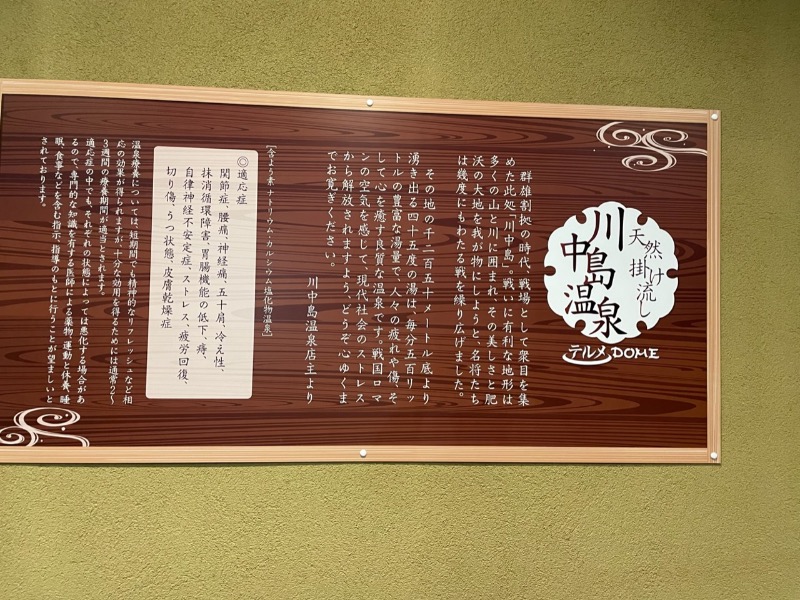 天然掛け流し
川中島温泉
テルメDOME
群雄割拠の時代、戦場として衆目を集
めた此処「川中島」。戦いに有利な地形は
多くの山と川に囲まれ、その美しさと肥
沃の大地を我が物にしようと、名将たち
は幾度にもわたる戦を繰り広げました。
その地の千二百五十メートル底より
湧き出る四十五度の湯は、毎分五百リッ
トルの豊富な湯量で、人々の疲れや傷そ
して心を癒す良質な温泉です。戦国ロマ
ンの空気を感じて、現代社会のストレス
から解放されますよう、どうぞ心ゆくま
でお寛ぎください。
川中島温泉店主より
[含よう素-ナトリウム・カルシウム塩化物温泉]
◎適応症
関節症、腰痛、神経痛、五十肩、冷え性、
抹消循環障害、胃腸機能の低下、痔、
自律神経不安定症、ストレス、疲労回復、
切り傷、うつ状態、皮膚乾燥症
温泉療養については、短期間でも精神的なリフレッシュなど相
応の効果が得られますが、十分な効用を得るためには通常2～
3週間の療養期間が適当とされます。
適応症の中でも、それぞれの状態によっては悪化する場合があ
るので、専門的な知識を有する医師による薬物、運動と休養、睡
眠、食事などを含む指示、指導のもとに行うことが望ましいと
されております。